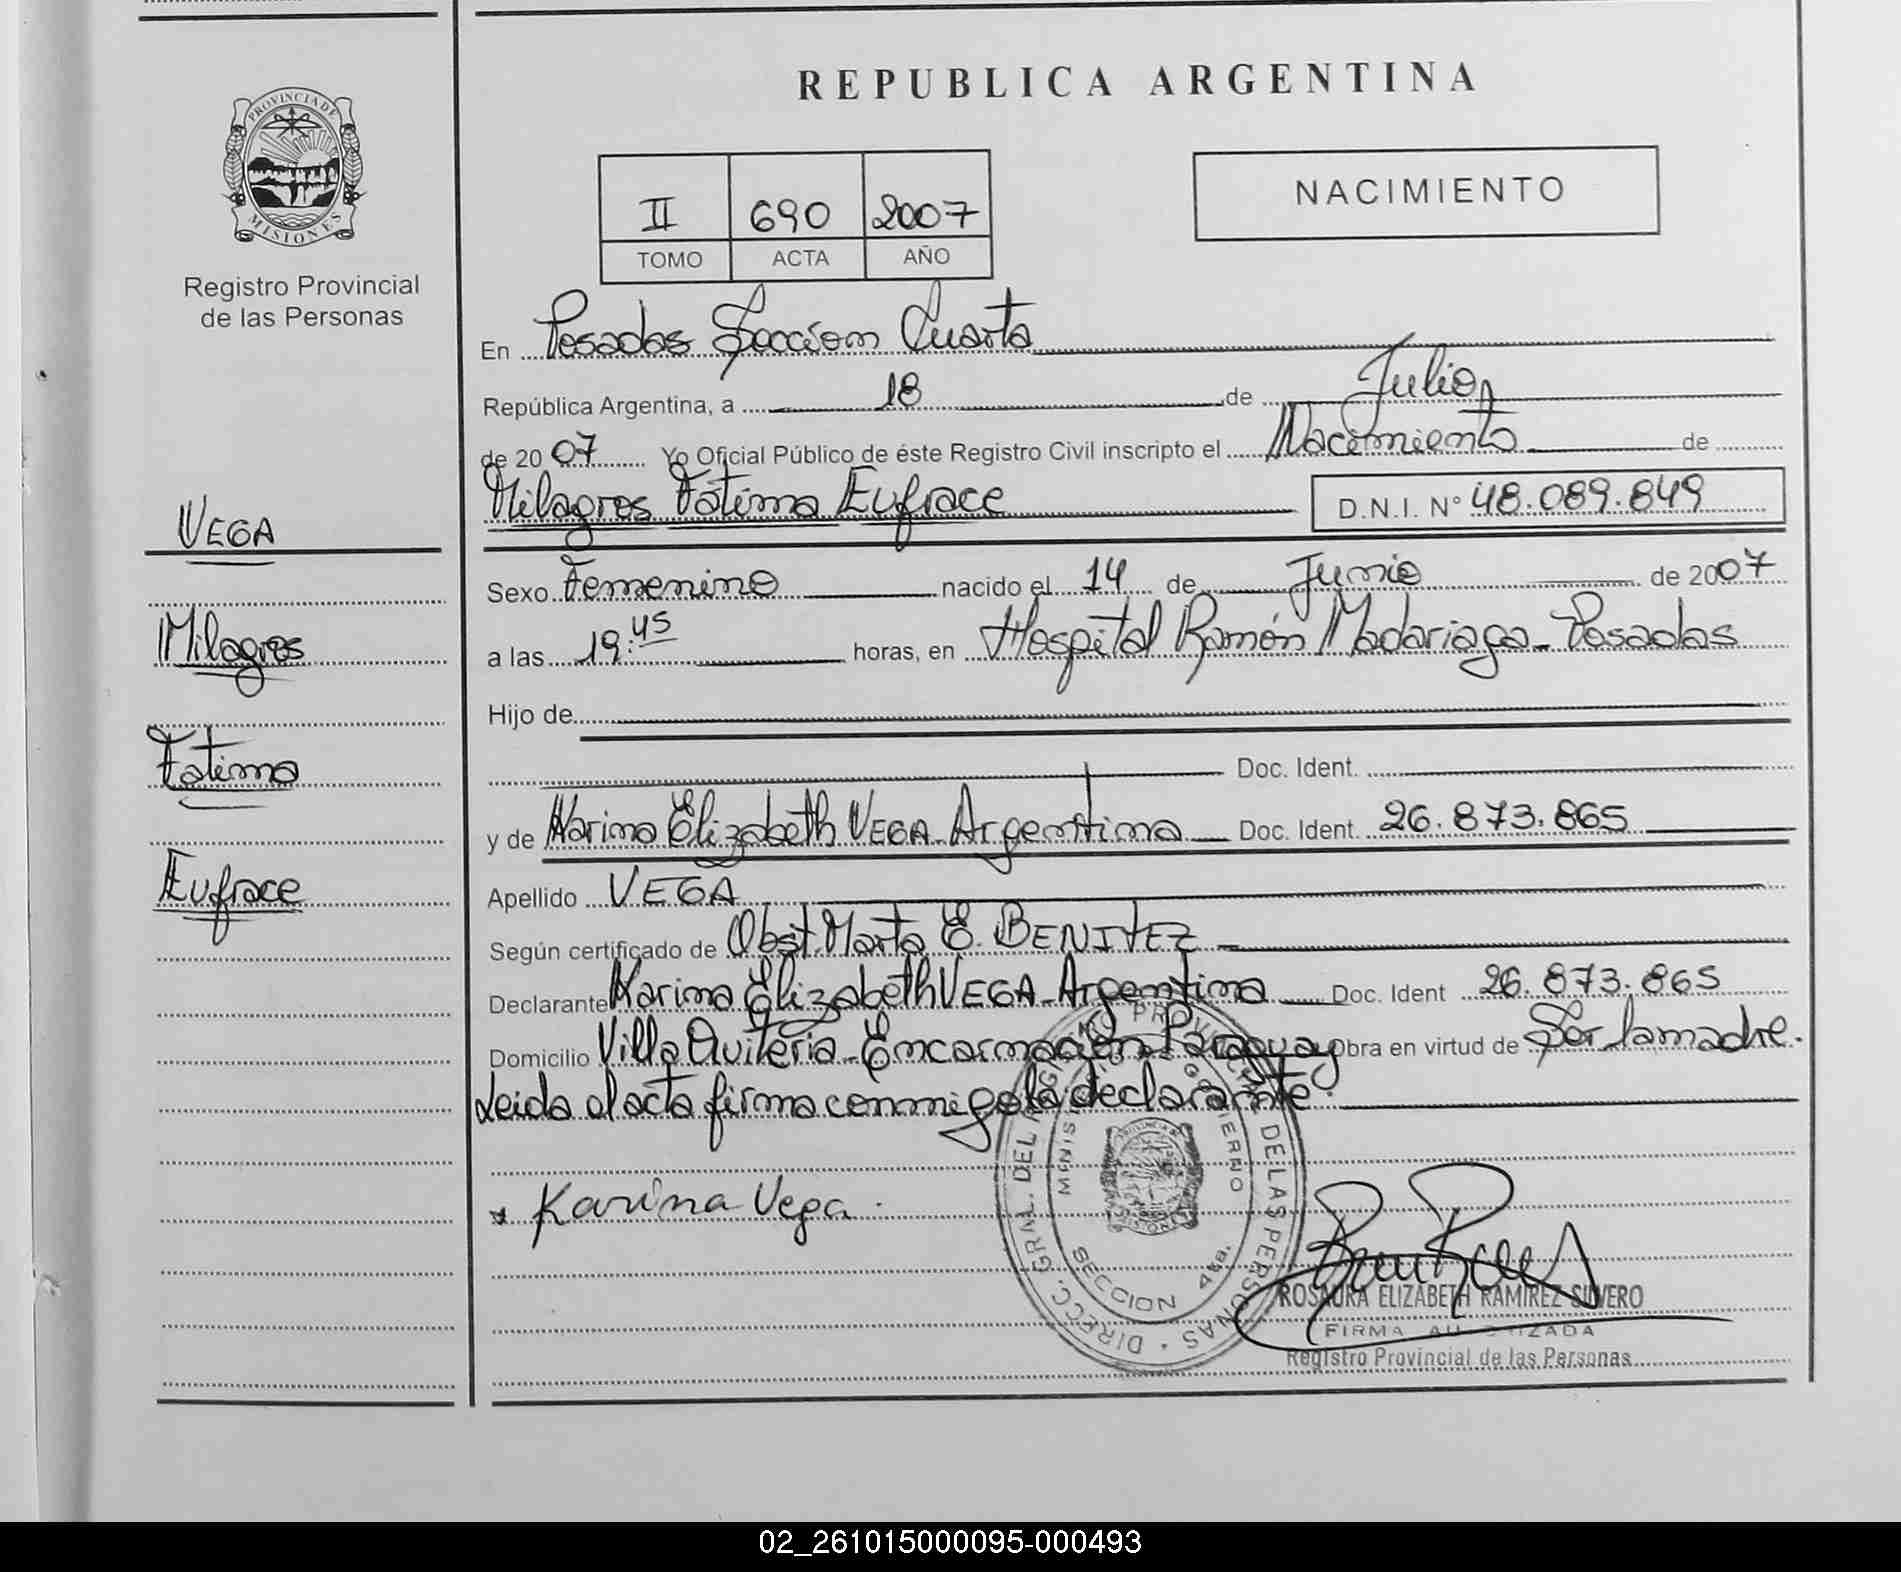 PROVINCIA DE
MISIONES
Registro Provincial
de las Personas
VEGA
Milagros
Fatima
Eufrace
REPUBLICA ARGENTINA
II 690 2007
TOMO ACTA AÑO
NACIMIENTO
En Posadas Seccion Cuarta
República Argentina, a 18 de Julio
de 2007 Yo Oficial Público de éste Registro Civil inscripto el Nacimiento de
Milagros Fatima Eufrace D.N.I. N° 48.089.849
Sexo Femenino nacido el 14 de Junio de 2007
a las 19:45 horas, en Hospital Ramón Madariaga - Posadas
Hijo de
Doc. Ident.
y de Karina Elizabeth VEGA - Argentina Doc. Ident. 26.873.865
Apellido VEGA
Según certificado de Obst. Marta E. BENITEZ
Declarante Karina Elizabeth VEGA - Argentina Doc. Ident 26.873.865
Domicilio Villa Quiteria - Encarnación Paraguay Obra en virtud de Ser la madre.
Leida el acta firma conmigo la declarante.
Karina Vega.
DIRECC. GRAL. DEL REGISTRO PROVINCIAL DE LAS PERSONAS
MINISTERIO DE GOBIERNO
SECCION 4ta.
ROSAURA ELIZABETH RAMIREZ SILVERO
FIRMA AUTORIZADA
Registro Provincial de las Personas
02_261015000095-000493